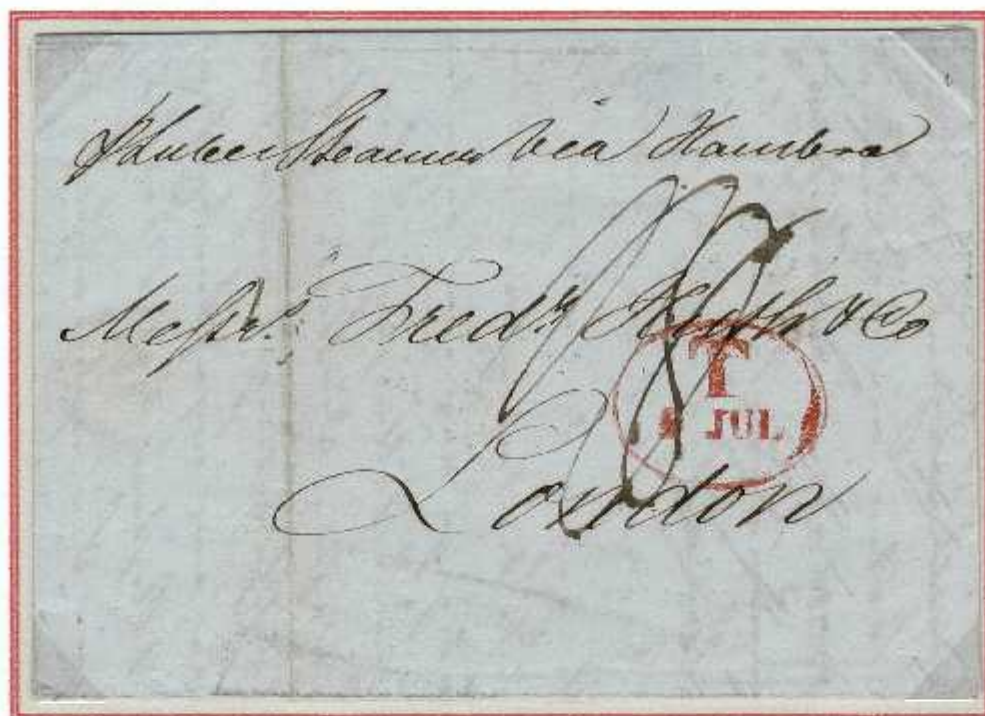 Steamer via Hambro
Messrs. Fredk Huth & Co
T
JUL
London